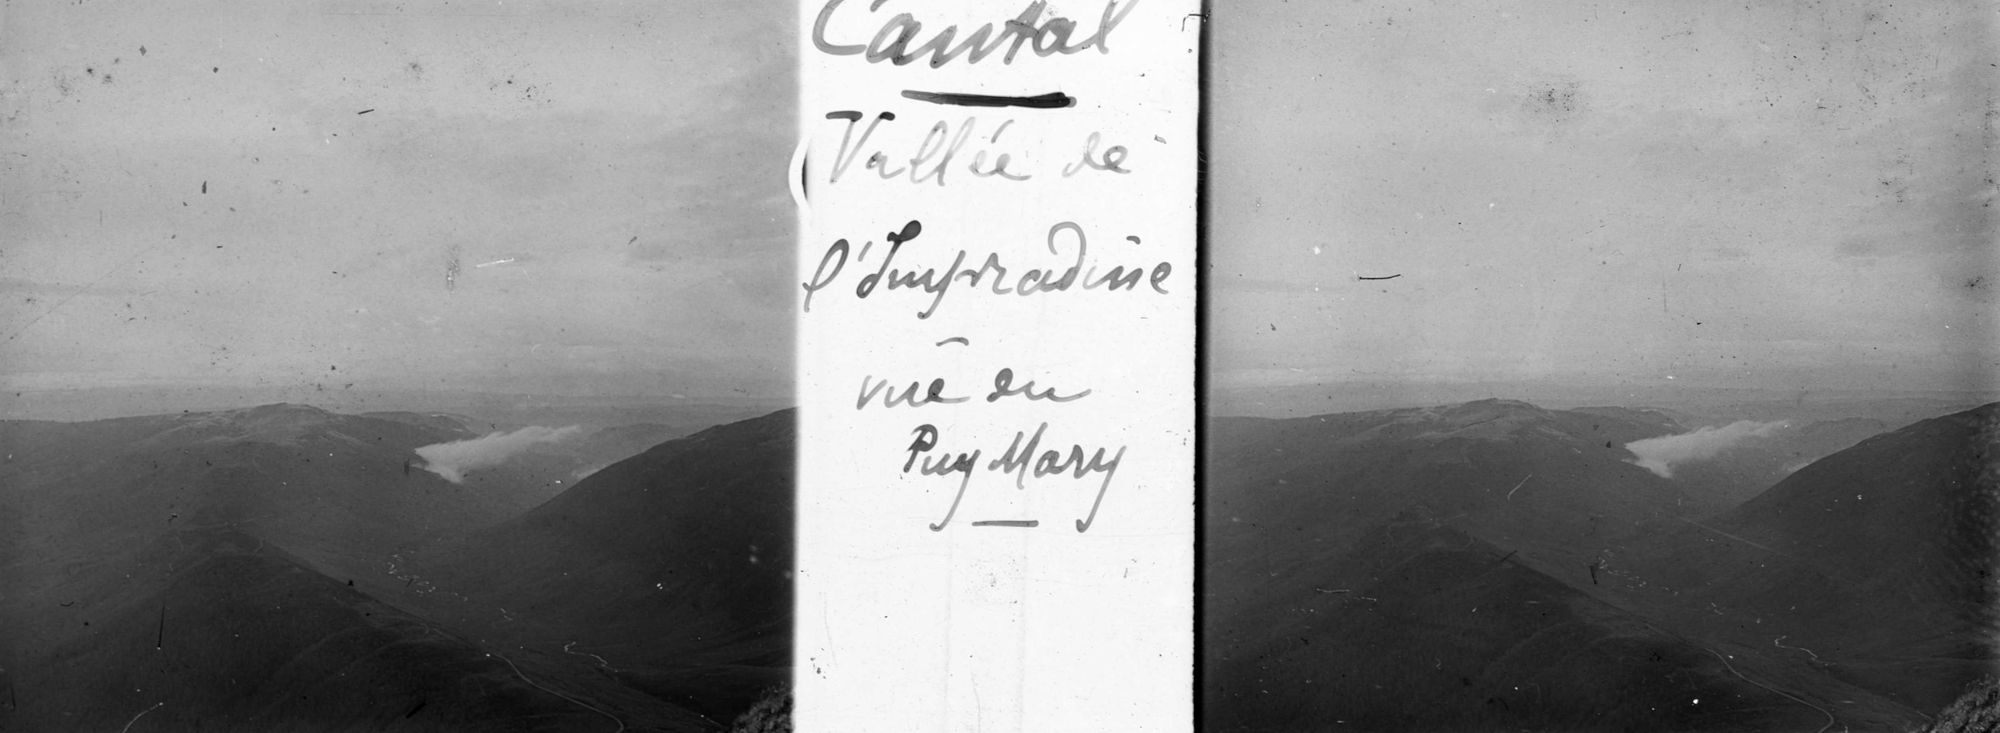 Cantal
Vallée de
l'Impradine
vue du
Puy Mary